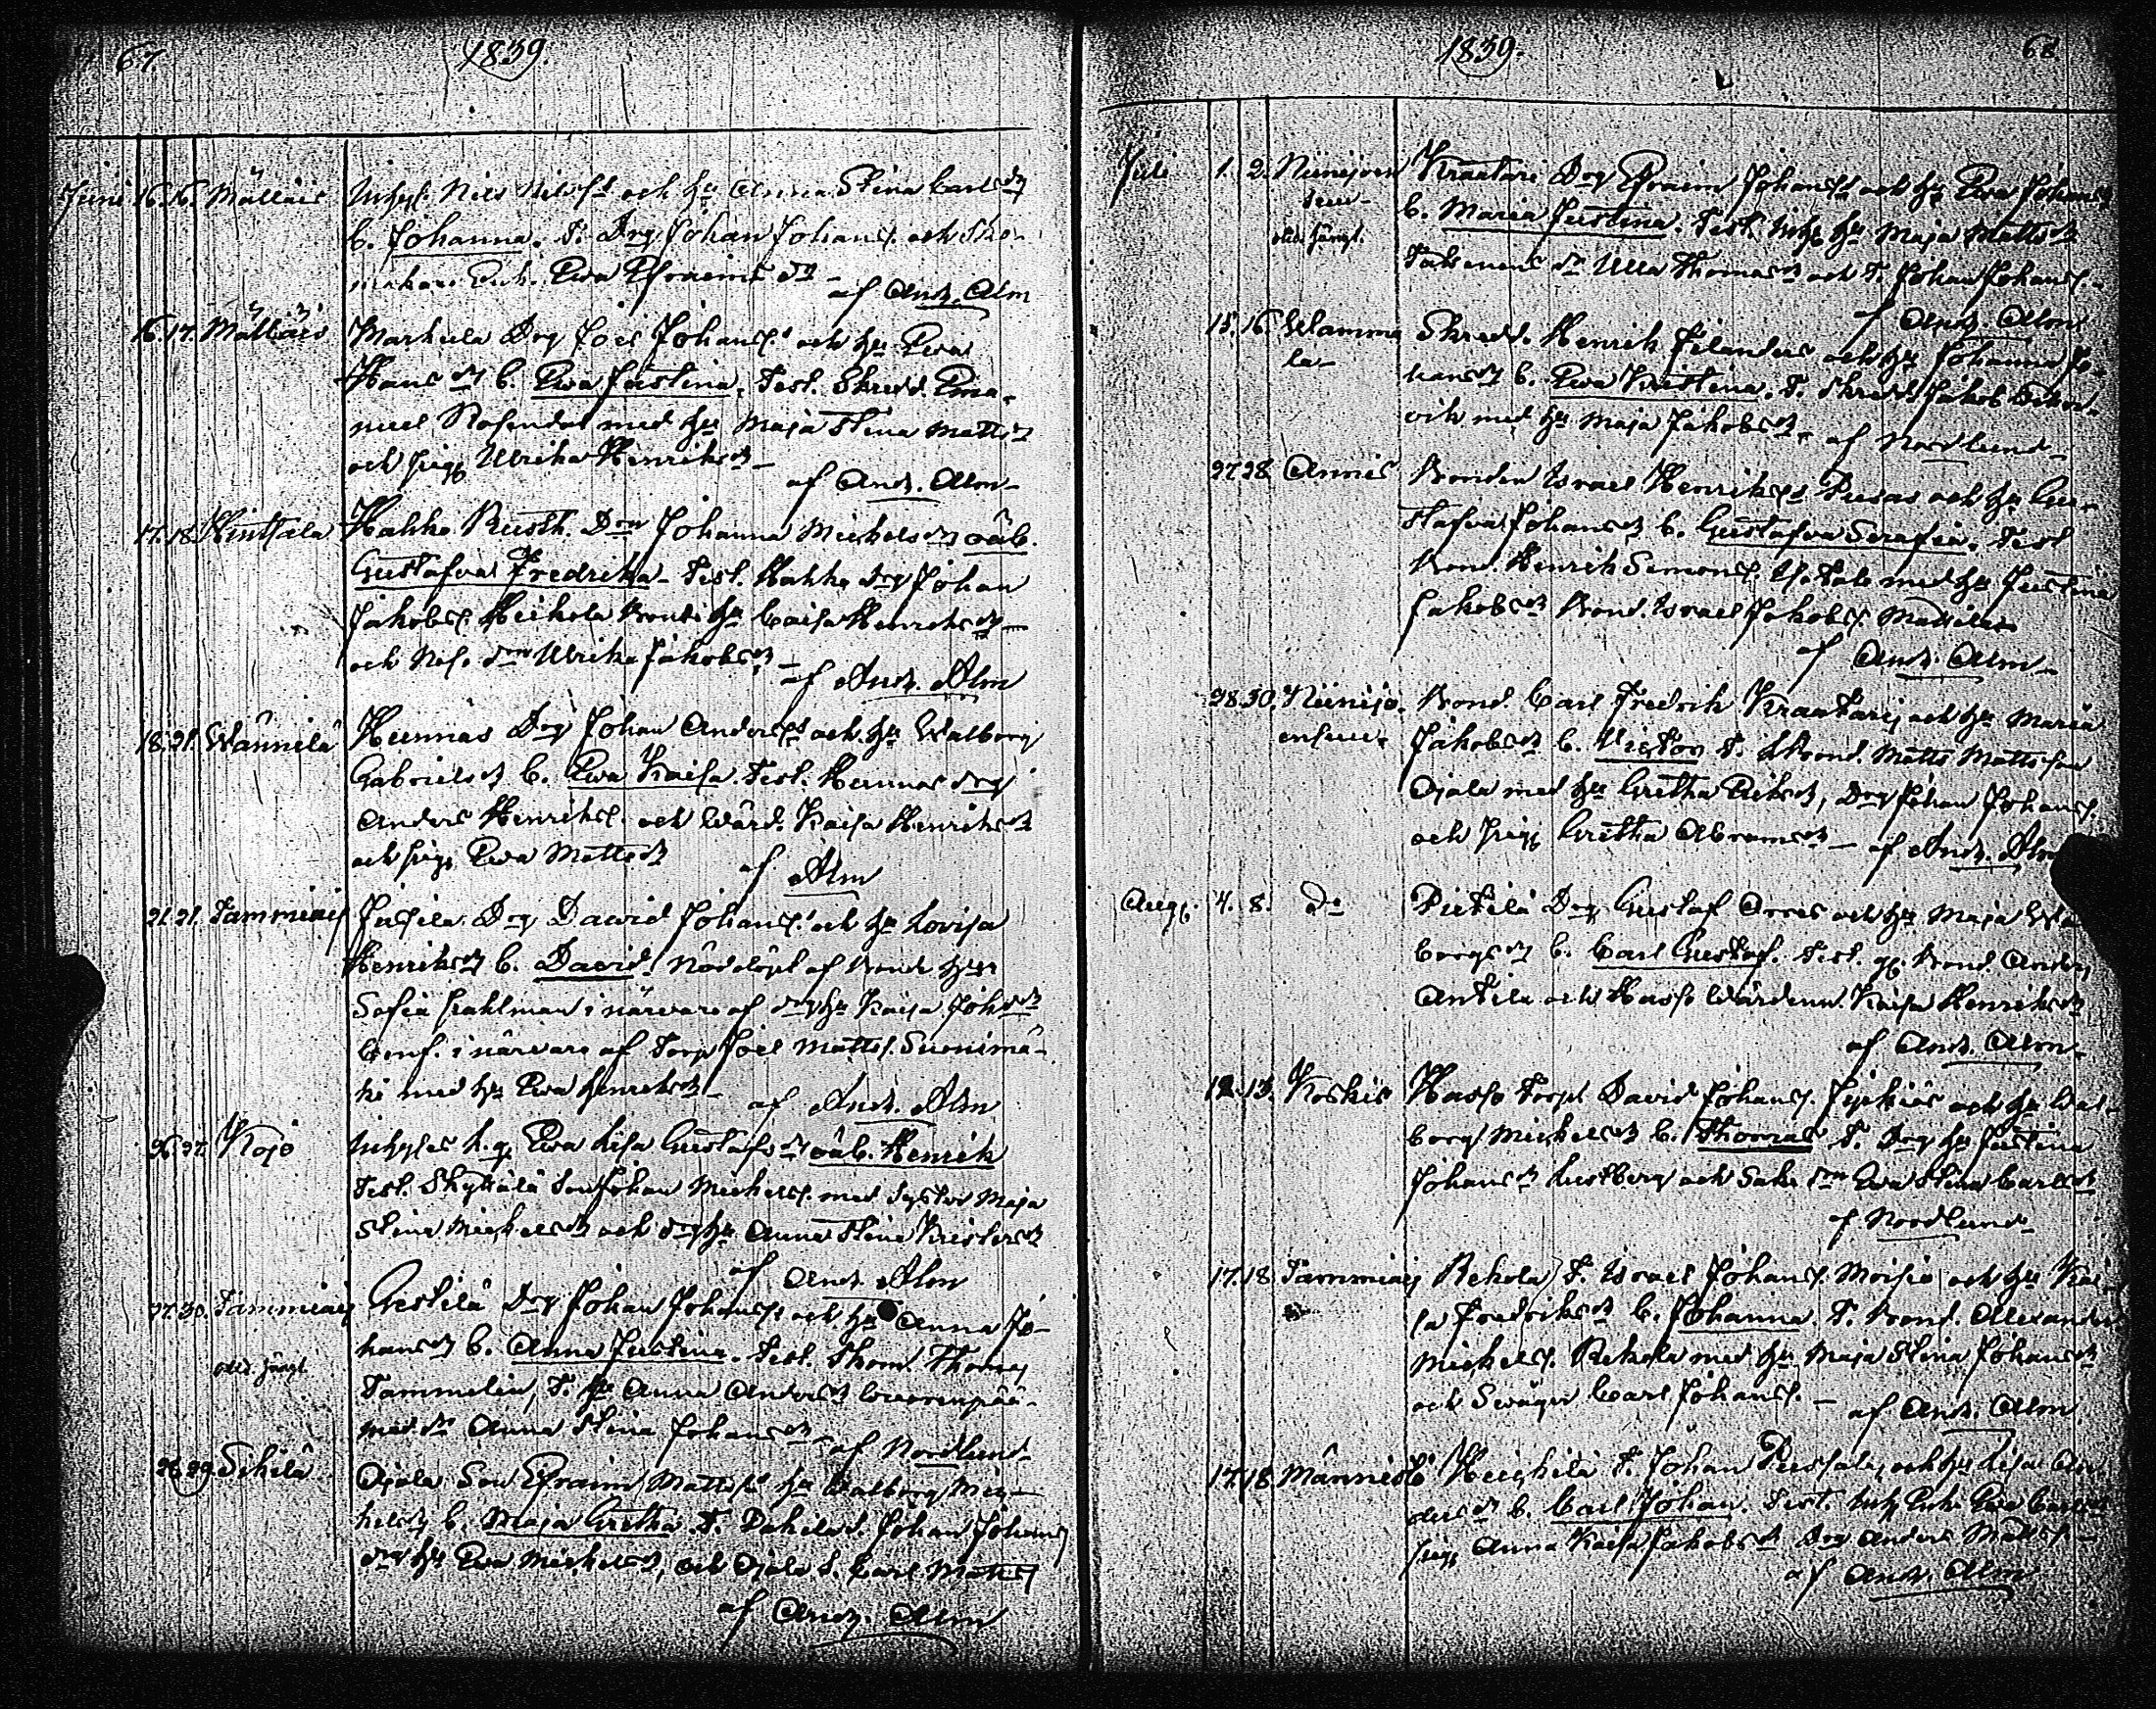 67. 1839.
Juni 16. 16. Mälläis Inhys. Nils Nilss. och hu Anna Stina Carlsdr
b. Johanna. T. Drg Johan Johanss. och
Enk. Ewa Efraimsdr
af And. Alm
16. 17. Mälläis Markula Drg Joel Johanss. och hu Ewa
Hansdr b. Ewa Justina. Test. Skredd. Ema-
nuel Rosendal med hu Maja Stina Mattsdr
och pig. Ulrika Henriksdr
af And. Alm
17. 18. Hinttala Hakko Rusth. Drn Johanna Michelsdr oäb.
Gustafva Fredrika. Test. Hakko drg Johan
Jakobss. Heikola Bonde hu Caisa Henriksdr
och drn Ulrika Jakobsdr
af And. Alm
18. 21. Wännilä Hunnas Drg Johan Anderss. och hu Walborg
Gabrielsdr b. Ewa Kaisa. Test. Hunnas drg
Anders Henrikss. och Wärd. Kaisa Henriksdr
och pig. Ewa Mattsdr
af Alm
21. 21. Tammiais Jusila Drg David Johanss. och hu Lovisa
Henriksdr b. David. Nöddöpt af Bonde hu
Sofia Stahlman i närvaro af drg hu Kaisa Joh.dr
Conf. i närvaro af Torp Joel Mattss. Suonimä-
ki med hu Ewa Henriksdr
af And. Alm
26. 27. Kojo Inhyses k. q. Ewa Lisa Gustafsdr oäb. Henrik
Test. Skyttälä Son Johan Michelss. med Syster Maja
Stina Michelsdr och drg hu Anna Stina Kristersdr
af And. Alm
27. 30. Tammiais Crestilä Drg Johan Johanss. och hu Anna Jo-
hansdr b. Anna Justina. Test. Thom. Thomass
Tammelin, T. hu Anna Andersdr
med dr Anna Stina Johansdr
af Nordlund
28. 29. Sikilä Ojala Son Efraim Mattss. hu Walborg Mic-
helsdr b. Maja Gretha. T. Pahilad. Johan Johanss
drg hu Ewa Michelsdr, och Ojala S. Carl Mattss
af And. Alm
1839. 68
Juli 1. 2. Niinijoen Kraatari Drg Efraim Johanss. och hu Ewa Johansdr
suu- b. Maria Justina. Test. Inh. hu Maja Mattsdr
dr Ulla Thomasdr och T. Johan Johanss.
af And. Alm
15. 16. Wamma Skredd. Henrik Filanders och hu Johanna Jo-
la- hansdr b. Ewa Kristina. T. Skredd. Jakob
vik med hu Maja Jakobsdr
af Nordlund
27. 28. Annis Bonden Israel Henrikss. Pusas och hu Gu-
stafva Johansdr b. Gustafva Serafia. Test
Bond. Henrik Simonss. Isotalo med hu Justina
Jakobsdr Bond. Israel Jakobss. Mattila
af And. Alm
28. 30. Niinijo- Bond. Carl Fredrik Kraatari och hu Maria
ensuu- Jakobsdr b. Victor T. Bond. Matts Mattsson
Ojala med hu Gretha Eriksdr, Drg Johan Johanss.
och pig. Gretha Abramsdr af And. Alm
Aug. 4. 8. Do Pietilä Drg Gustaf Orres och hu Maja Wal
borgsdr b. Carl Gustaf. Test. gl. Bond. Anders
Antila och Hasso Wärdinn. Kaisa Henriksdr
af And. Alm
12. 13. Koskis Hasso Torpd. David Johanss. och hu Wal-
borg Michelsdr b. Thomas T. Drg hu Justina
Johansdr Lustberg och drn Ewa Stina Carlsdr
af Nordlund
17. 18. Tammiais Rekola T. Israel Johanss. Moisio och hu Kai
sa Fredriksdr b. Johanna. T. Bond. Alexander
Michelss. Rekola med hu Maja Stina Johansdr
och Swåger Carl Johanss.
af And. Alm
17. 18. Männistö T. Johan och hu Lisa An
dersdr b. Carl Johan. Test. Inh. Enk. Ewa Carlsdr
pig. Anna Kaisa Jakobsdr Drg Anders Mattss.
af And. Alm